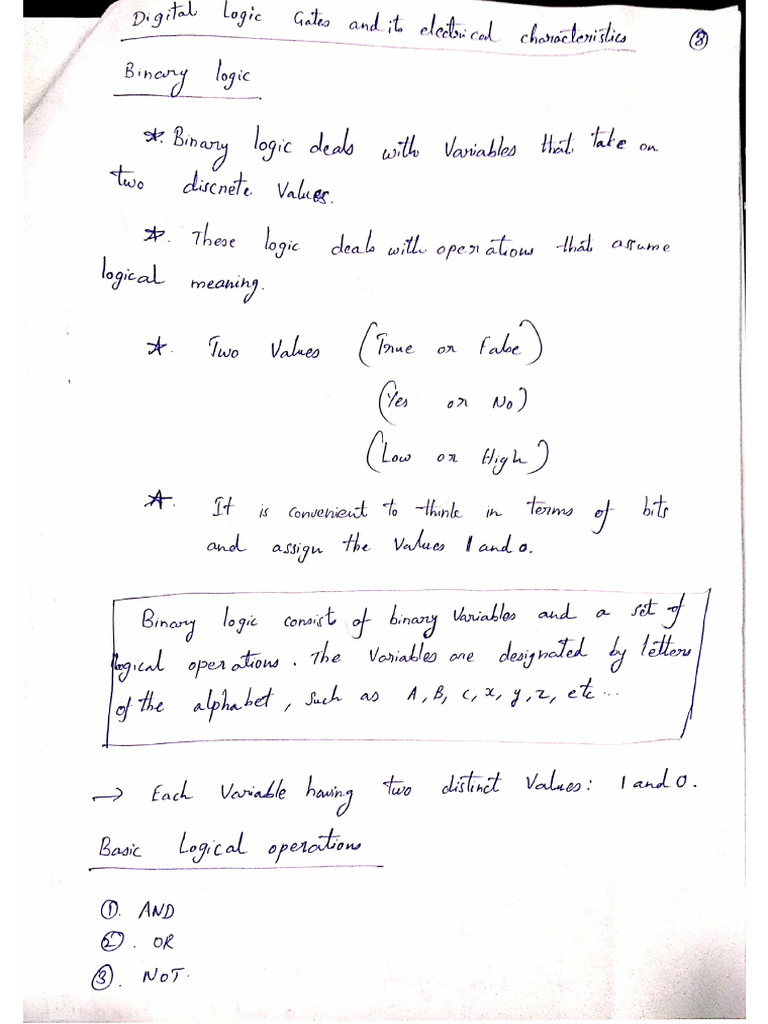 Digital Logic Gates and its electrical characteristics
8
Binary logic
*. Binary logic deals with Variables that take on
two discrete Values.
*. These logic deals with operations that assume
logical meaning.
*. Two Values (True or False)
(Yes or No)
(Low or High)
*. It is convenient to think in terms of bits
and assign the Values 1 and 0.
Binary logic consist of binary Variables and a set of
logical operations. The Variables are designated by letters
of the alphabet, such as A, B, C, x, y, z, etc...
→ Each Variable having two distinct Values: 1 and 0.
Basic Logical operations
①. AND
②. OR
③. NOT.